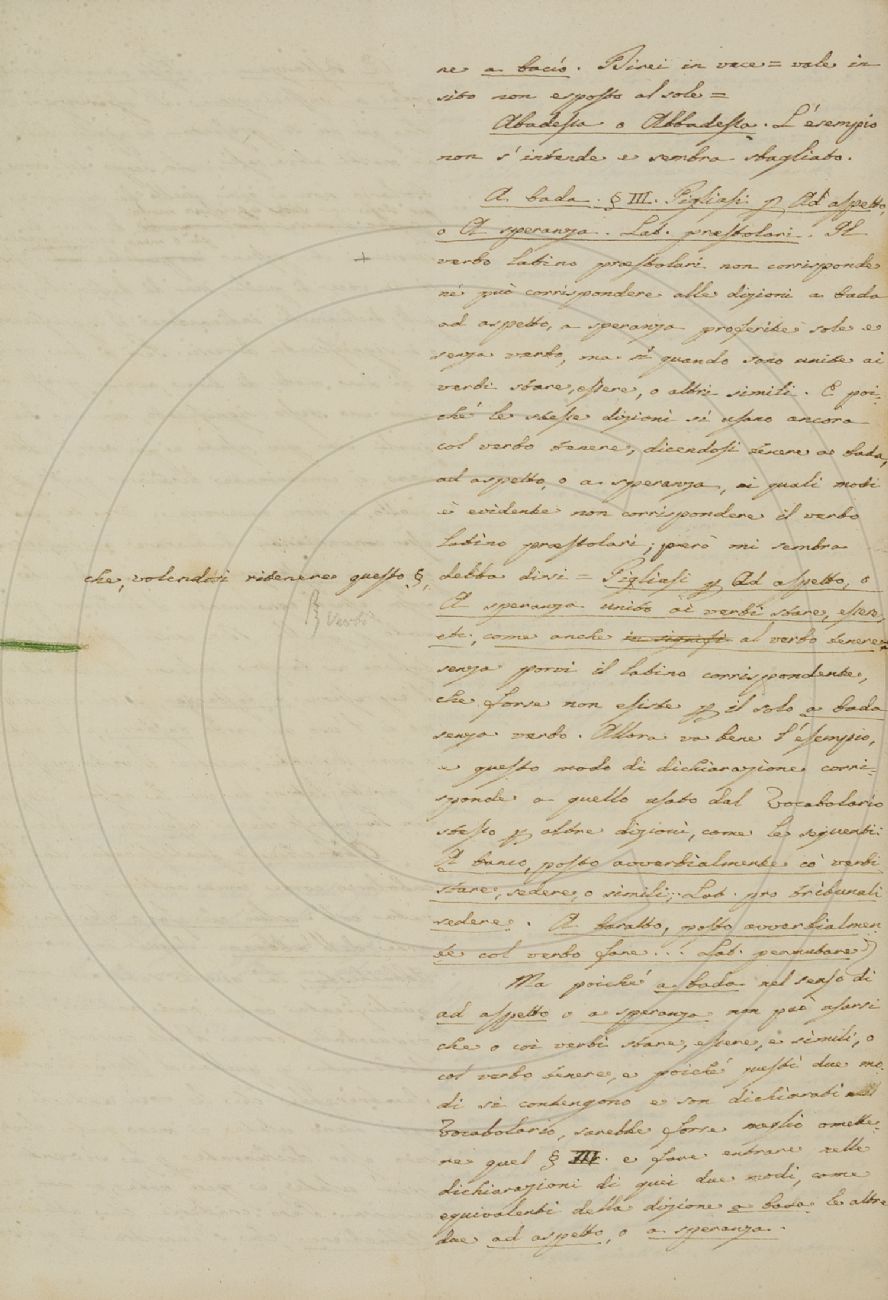 ne a bacío. Direi in vece = vale in
sito non esposto al sole =
Abadessa o Abbadessa. L'esempio
non s'intende e sembra sbagliato.
A bada. § III. Pigliasi p Ad aspetto,
o A speranza. Lat. præstolari. Il
verbo latino præstolari non corrisponde
né può corrispondere alle dizioni a bada
ad aspetto, a speranza proferite sole e
senza verbo, ma sì quando sono unite ai
verbi stare, essere, o altri simili. E poi-
ché le stesse dizioni si usano ancora
col verbo tenere, dicendosi tenere a bada,
ad aspetto, o a speranza, ai quali modi
è evidente non corrispondere il verbo
latino præstolari; però mi sembra
che, volendosi ritenere questo §,
verbi
debba dirsi = Pigliasi p Ad aspetto, o
A speranza unito ai verbi stare, essere,
etc, come anche in signifi al verbo tenere =
senza porvi il latino corrispondente,
che forse non esiste p il solo a bada
senza verbo. Allora va bene l'esempio,
e questo modo di dichiarazione corri-
sponde a quello usato dal Vocabolario
stesso p altre dizioni, come le seguenti:
A banco, posto avverbialmente co' verbi
stare, sedere, o simili; Lat. pro tribunali
sedere. A baratto, posto avverbialmen-
te col verbo fare... Lat. permutare)
Ma poiché a bada nel senso di
ad aspetto o a speranza non può usarsi
che o coi verbi stare, essere, e simili, o
col verbo tenere, e poiché questi due mo-
di si contengono e son dichiarati nel
Vocabolario, sarebbe forse meglio omette-
re quel § III. e fare entrare nelle
dichiarazioni di quei due modi, come
equivalenti della dizione a bada le altre
due ad aspetto, o a speranza.